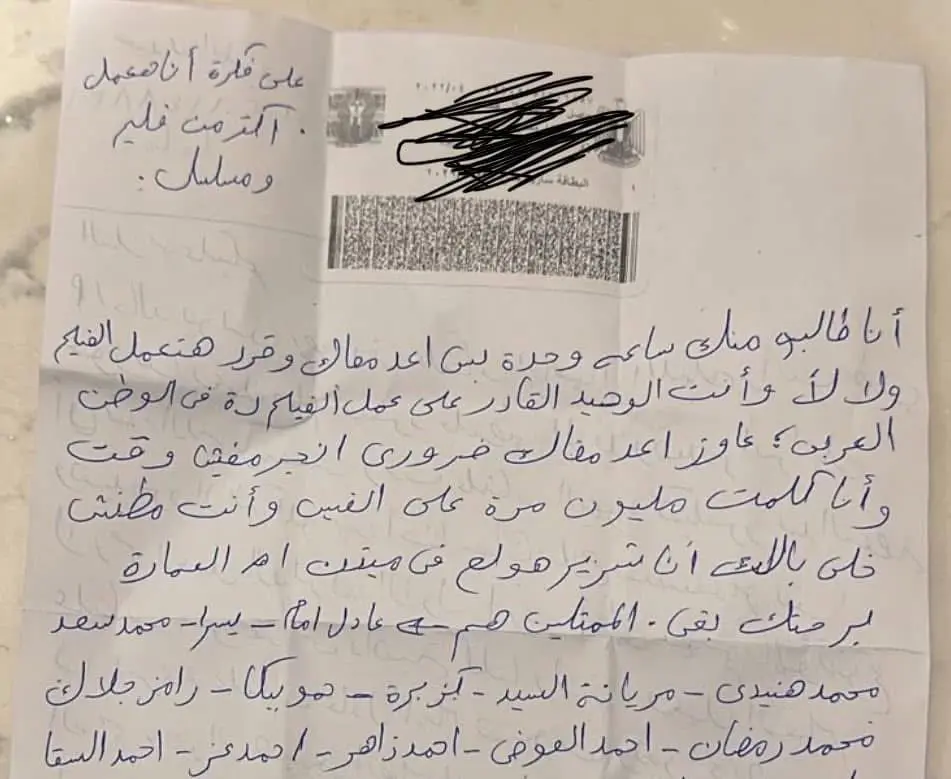 على فكرة أنا هعمل
أكتر من فليم
ومسلسل.
٢٠٢٢/٠٤
البطاقة سارية
أنا طالب منك ساعه وحدة بس اعد معاك وقرر هتعمل الفيلم
ولا لأ وأنت الوحيد القادر على عمل الفيلم دة فى الوطن
العربى؛ عاوز اعد معاك ضرورى انجز مفيش وقت
وأنا كلمت مليون مرة على الفيس وأنت مطنش
خلى بالك أنا شرير هولع فى ميتين ام العمارة
لبر منك بقى. الممثلين هم عادل امام - يسرا - محمد سعد
محمد هنيدى - مريانة السيد - كزبرة - حمو بيكا - رامز جلال
محمد رمضان - احمد العوضى - احمد زاهر - احمد عز - احمد السقا